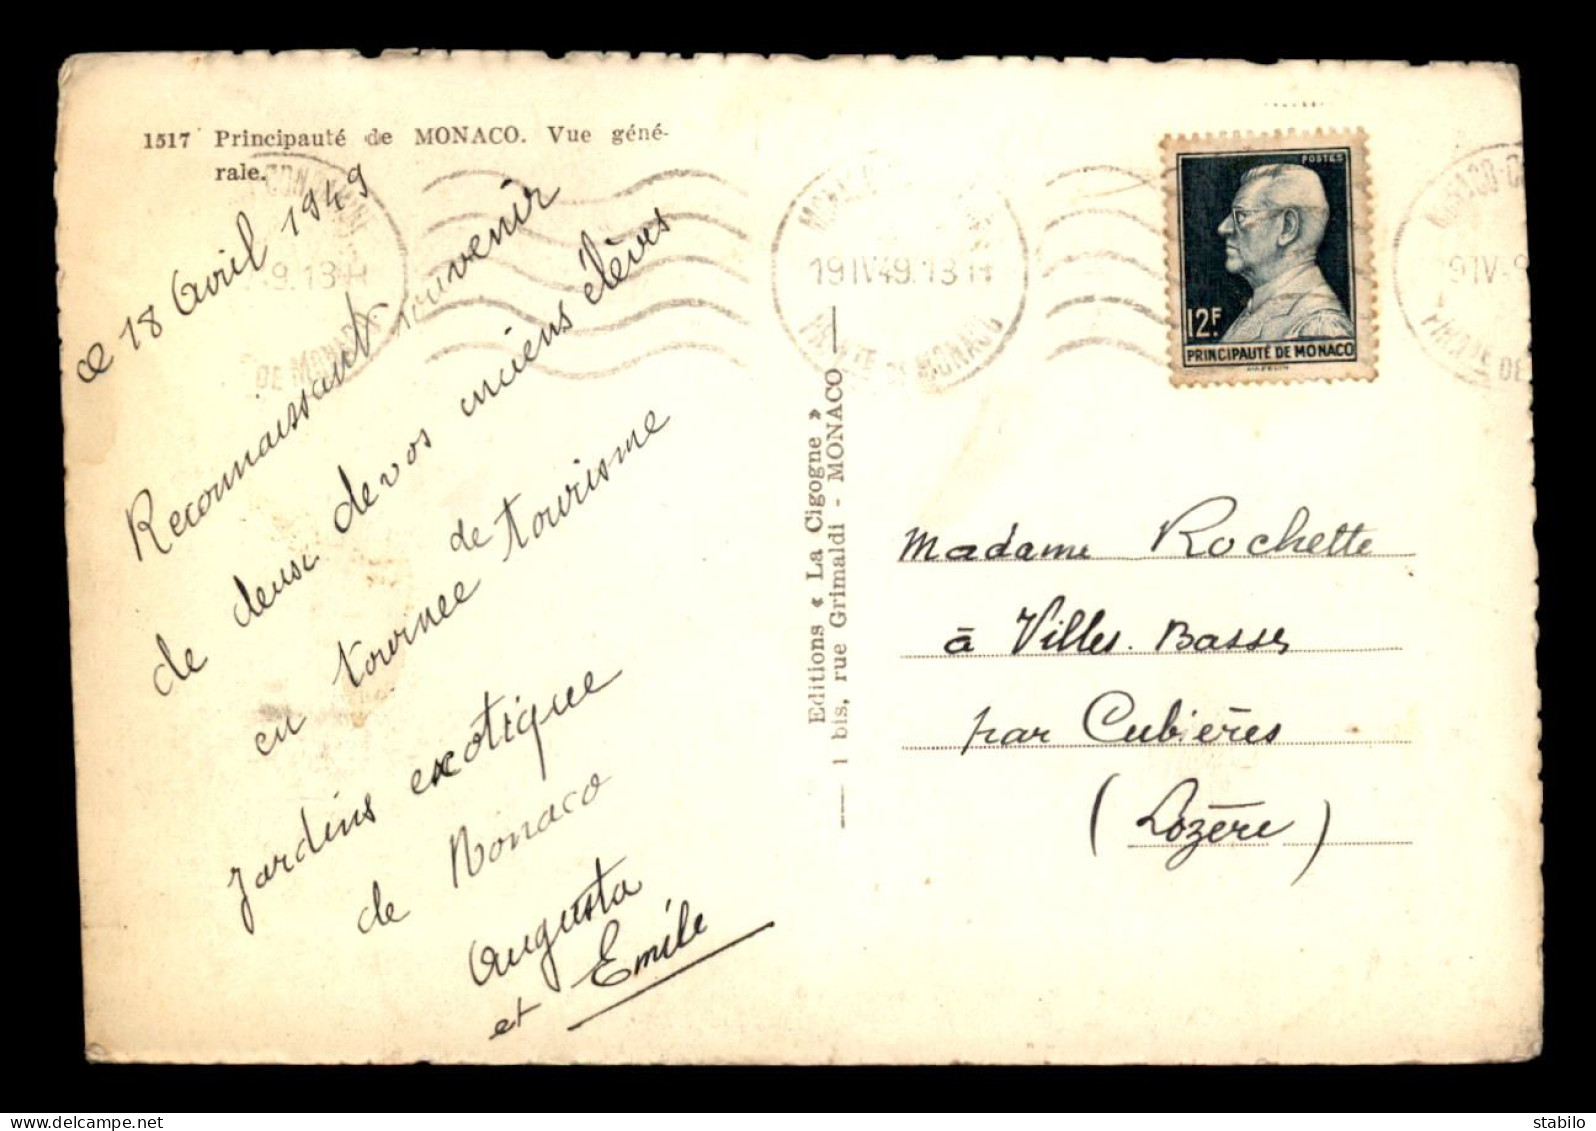 1517 Principauté de MONACO. Vue géné-
rale.
ce 18 Avril 1949
Reconnaissant souvenir
de deux de vos anciens élèves
en tournée de tourisme
Jardins exotique
de Monaco
Augusta
et Emile
Editions « La Cigogne »
1 bis, rue Grimaldi - MONACO
19 IV 49. 13 H
PPAUTE DE MONACO
9. 13 H
DE MONACO
POSTES
12F
PRINCIPAUTÉ DE MONACO
9 IV 49
Madame Rochette
à Villes. Basses
par Cubières
(Lozère)
stabilo